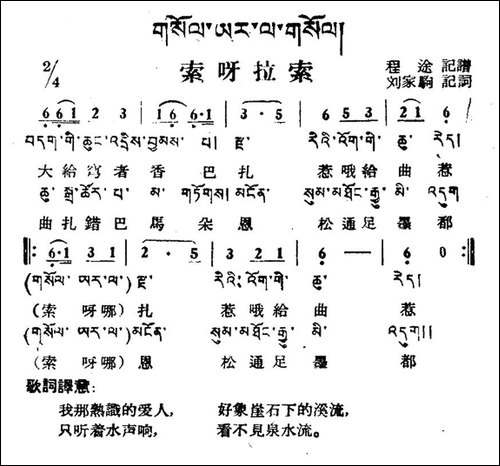 གསོལ་ཨར་ལ་གསོལ།
2/4
索呀拉索
程途 記譜
刘家駒 記詞
6 6 1 2 3 | 1 6 6·1 | 3 · 5 | 6 5 3 | 2 1 6 |
བདག་གི་ཆུང་འདྲིས་བྱམས་ པ། རྫ་ རིའི་འོག་གི་ ཆུ་ རེད།
大給窮者香 巴扎 惹哦給曲惹
ཆུ་སྒྲ་ཚོར་པ་མ་གཏོགས། མངོན་ སུམ་མཐོང་རྒྱུ་མི་འདུག
曲扎錯巴馬朵恩 松通足墨都
6·1 3 1 | 2 · 5 | 3 2 1 | 6 — | 6 0
(གསོལ་ ཨར་ལ་) རྫ་ རིའི་འོག་གི་ ཆུ་ རེད།
(索呀哪)扎 惹哦給曲惹
(གསོལ་ ཨར་ལ་) མངོན་ སུམ་མཐོང་རྒྱུ་ མི་ འདུག།
(索呀哪)恩 松通足墨都
歌詞譯意:
我那熱識的爱人, 好象崖石下的溪流,
只听着水声响, 看不見泉水流。